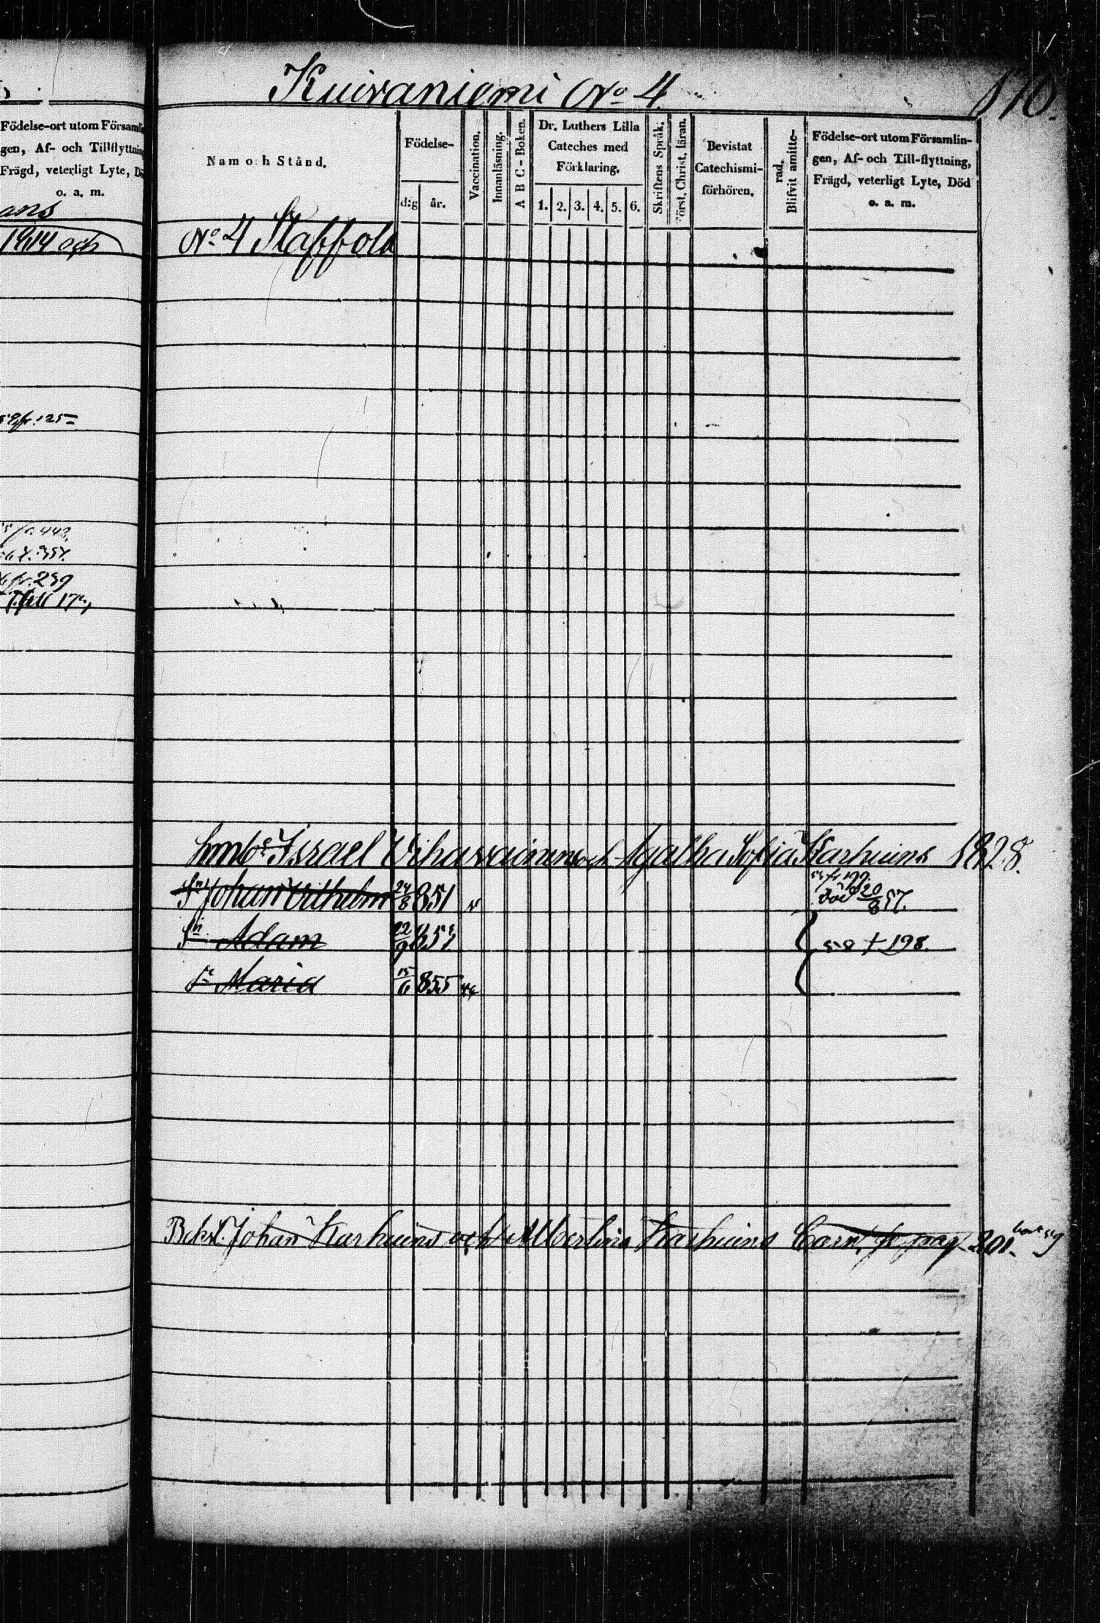 Kuivaniemi No 4
170.
Födelse-ort utom Försam
gen, Af- och Tillflyttning
Frägd, veterligt Lyte, D
o. a. m.
Namn och Stånd.
Födelse-
dag
år.
Vaccination.
Innanläsning.
A B C - Boken.
Dr. Luthers Lilla
Cateches med
Förklaring.
1. 2. 3. 4. 5. 6.
Skriftens Språk.
Först. Christ. läran.
Bevistat
Catechismi-
förhören.
Blifvit amitte-
rad.
Födelse-ort utom Församlin-
gen, Af- och Till-flyttning,
Frägd, veterligt Lyte, Död
o. a. m.
och
No 4 Staffola
fr. 125
fr. 239
Israel och Agatha Sofia Karhuins 1828.
Sn Johan Vilhelm 24/8 851 v
död 20/8 57.
Sn Adam 22/9 853
58 † 198.
Dr Maria 15/6 855
Johan Karhuins och Albertina Karhuins Barn, fr pag 201.